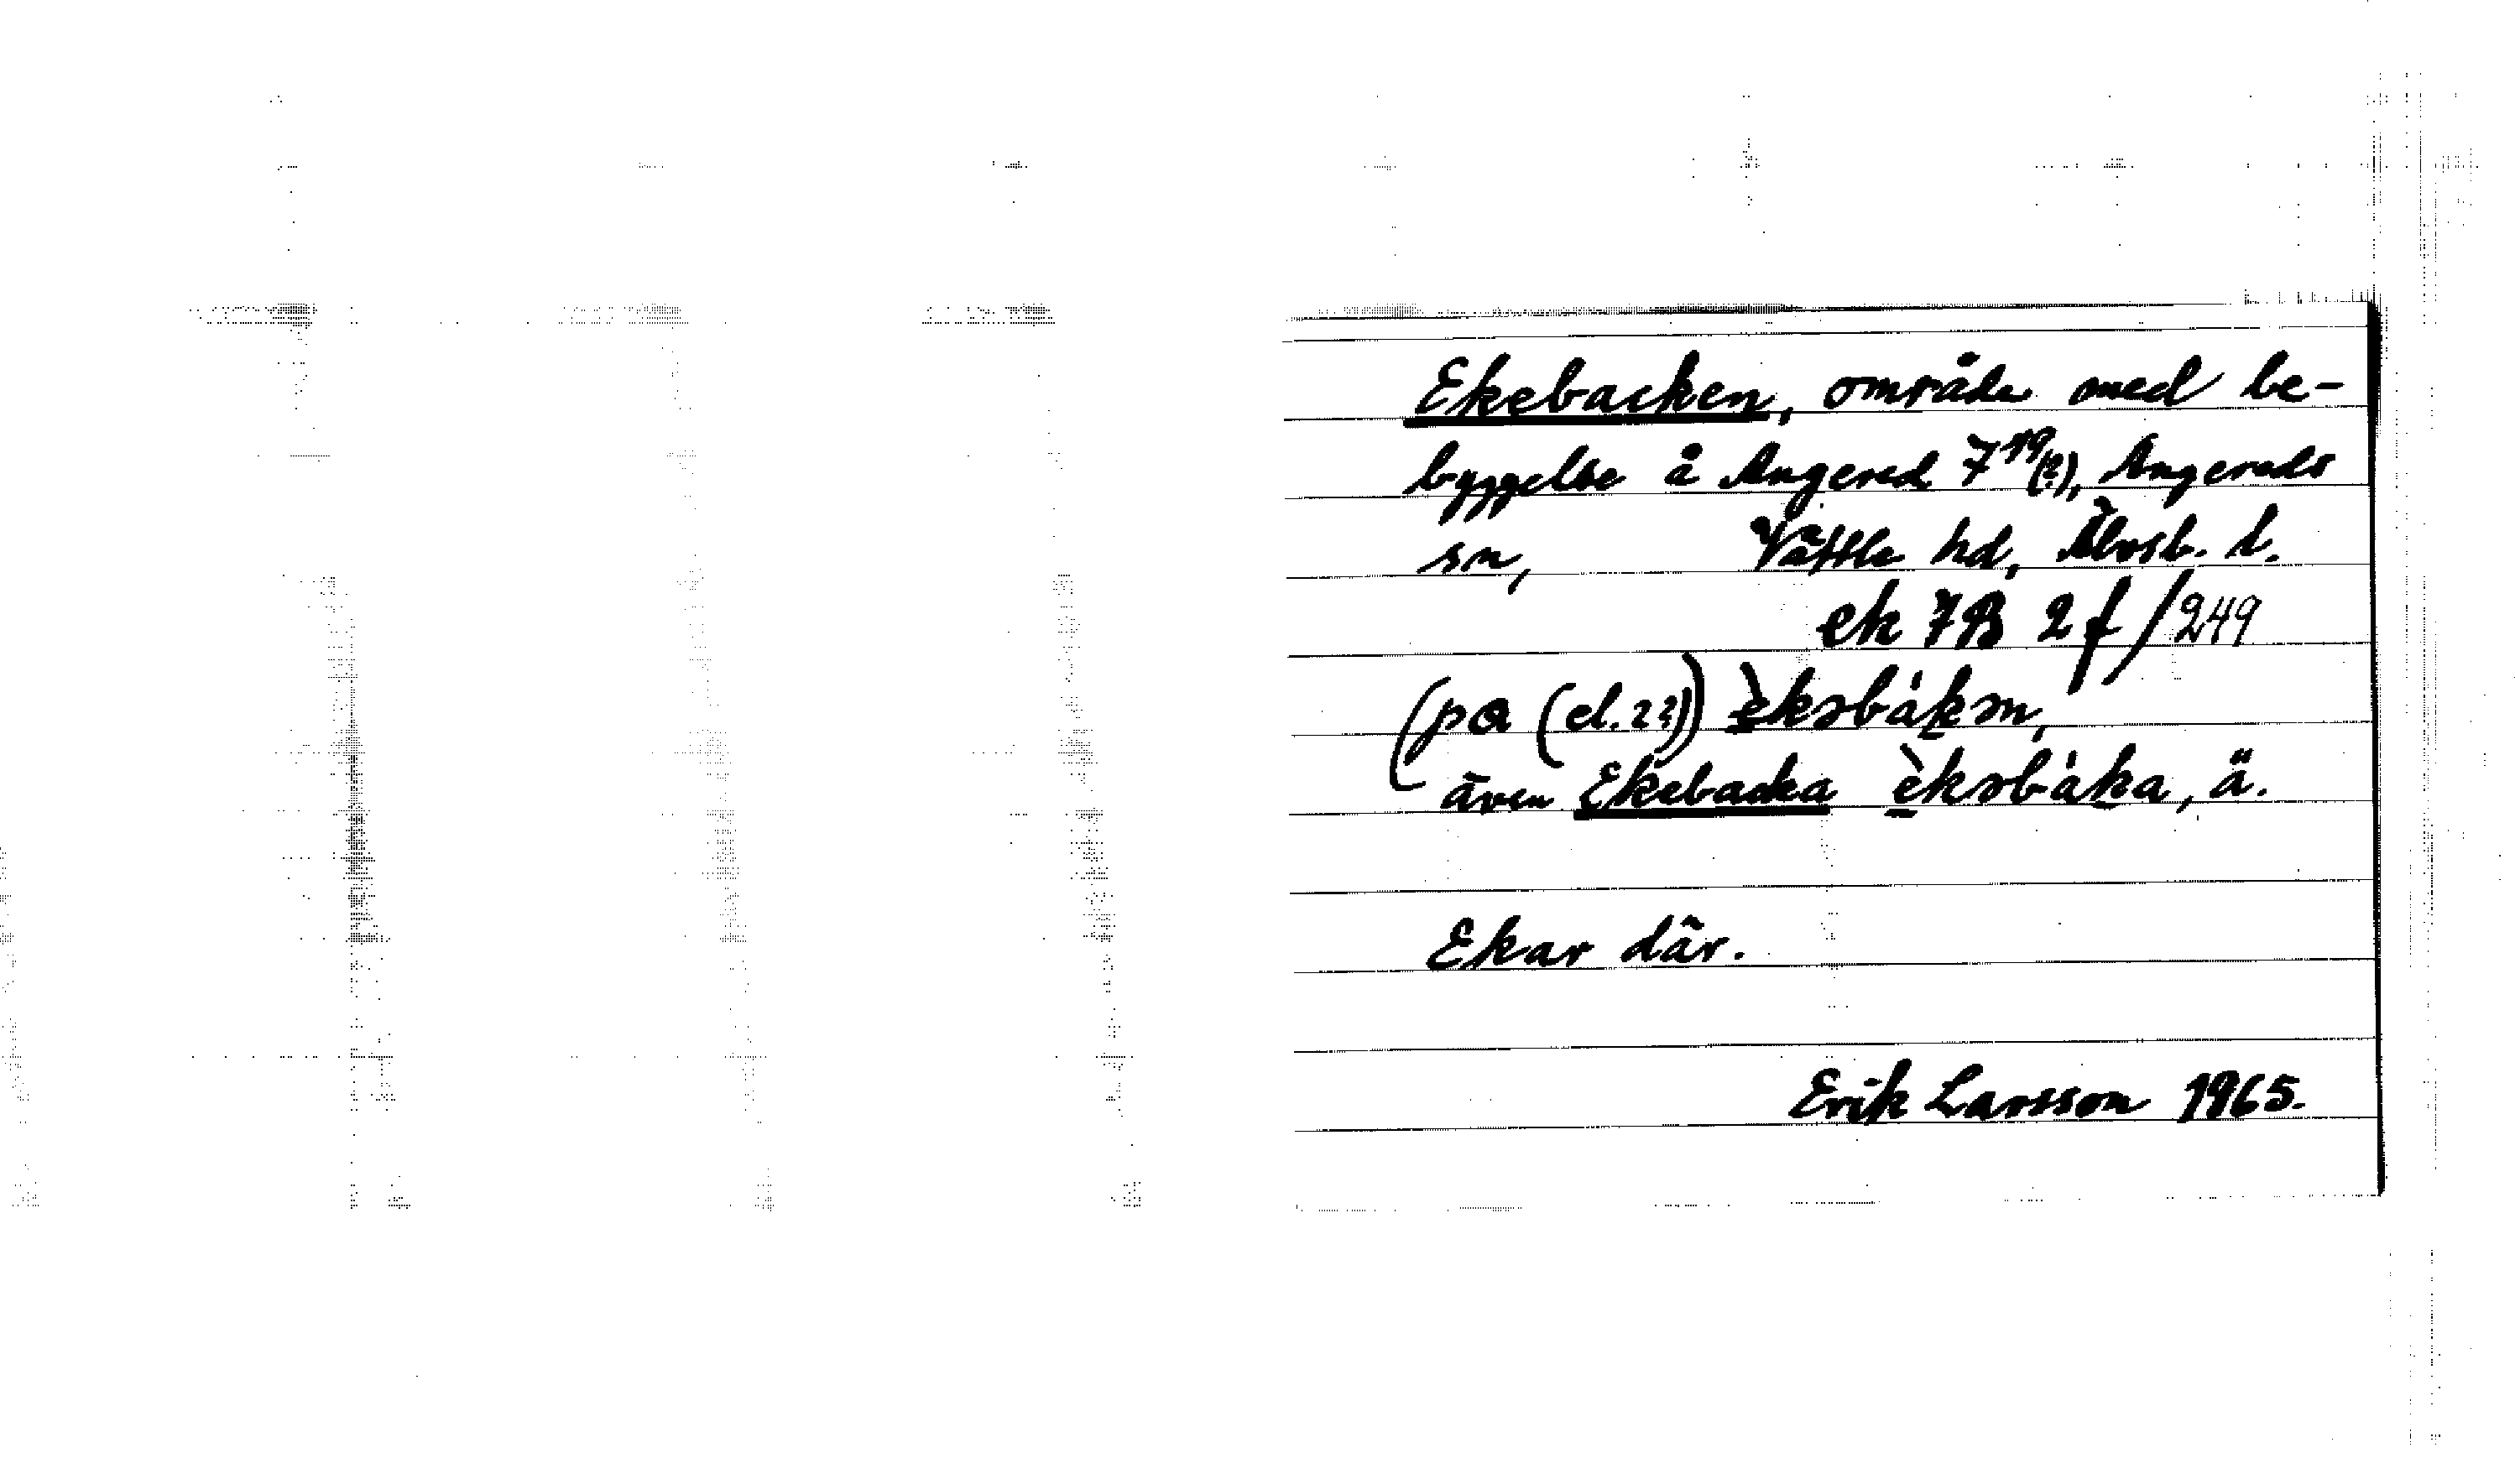 Ekebacken, område med be-
byggelse å Angered 7¹⁹(?), Angereds
sn, Vättle hd, Älvsb. l.
ek 7B 2 f/249
(på (el. i?)) èkəbákən,
även Ekebacka èkəbáka, ä.
Ekar där.
Erik Larsson 1965.